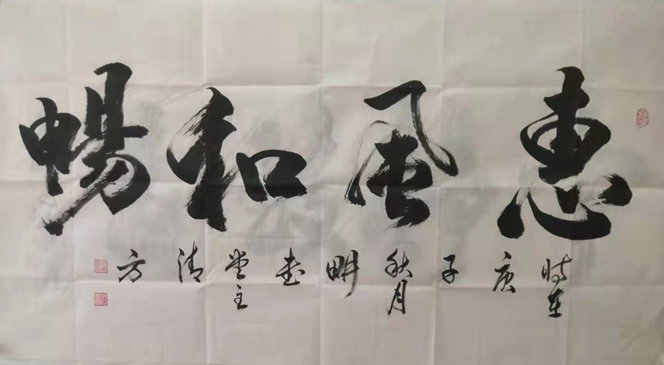 惠風和暢
時在庚子秋月畊書堂主清方